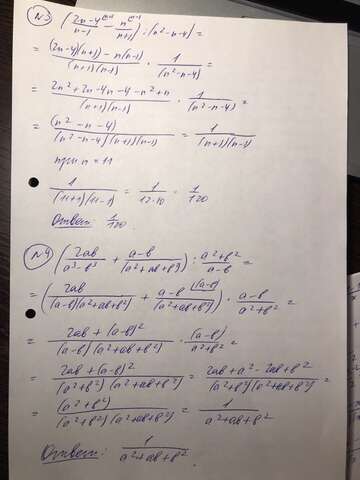 №3 (2n-4^(n+1)/n-1 - n^(n-1)/n+1) : (n²-n-4) =
= (2n-4)(n+1) - n(n-1)/(n+1)(n-1) · 1/(n²-n-4) =
= 2n²+2n-4n-4-n²+n/(n+1)(n-1) · 1/(n²-n-4) =
= (n²-n-4)/(n²-n-4)(n+1)(n-1) = 1/(n+1)(n-1)
при n = 11
1/(11+1)(11-1) = 1/12·10 = 1/120
Ответ: 1/120
№4 (2ab/a³-b³ + a-b/(a²+ab+b²)) : a²+b²/a-b =
= (2ab/(a-b)(a²+ab+b²) + a-b^(a-b)/(a²+ab+b²)) · a-b/a²+b² =
= 2ab+(a-b)²/(a-b)(a²+ab+b²) · (a-b)/a²+b² =
= 2ab+(a-b)²/(a²+b²)(a²+ab+b²) = 2ab+a²-2ab+b²/(a²+b²)(a²+ab+b²) =
= (a²+b²)/(a²+b²)(a²+ab+b²) = 1/a²+ab+b²
Ответ: 1/a²+ab+b²